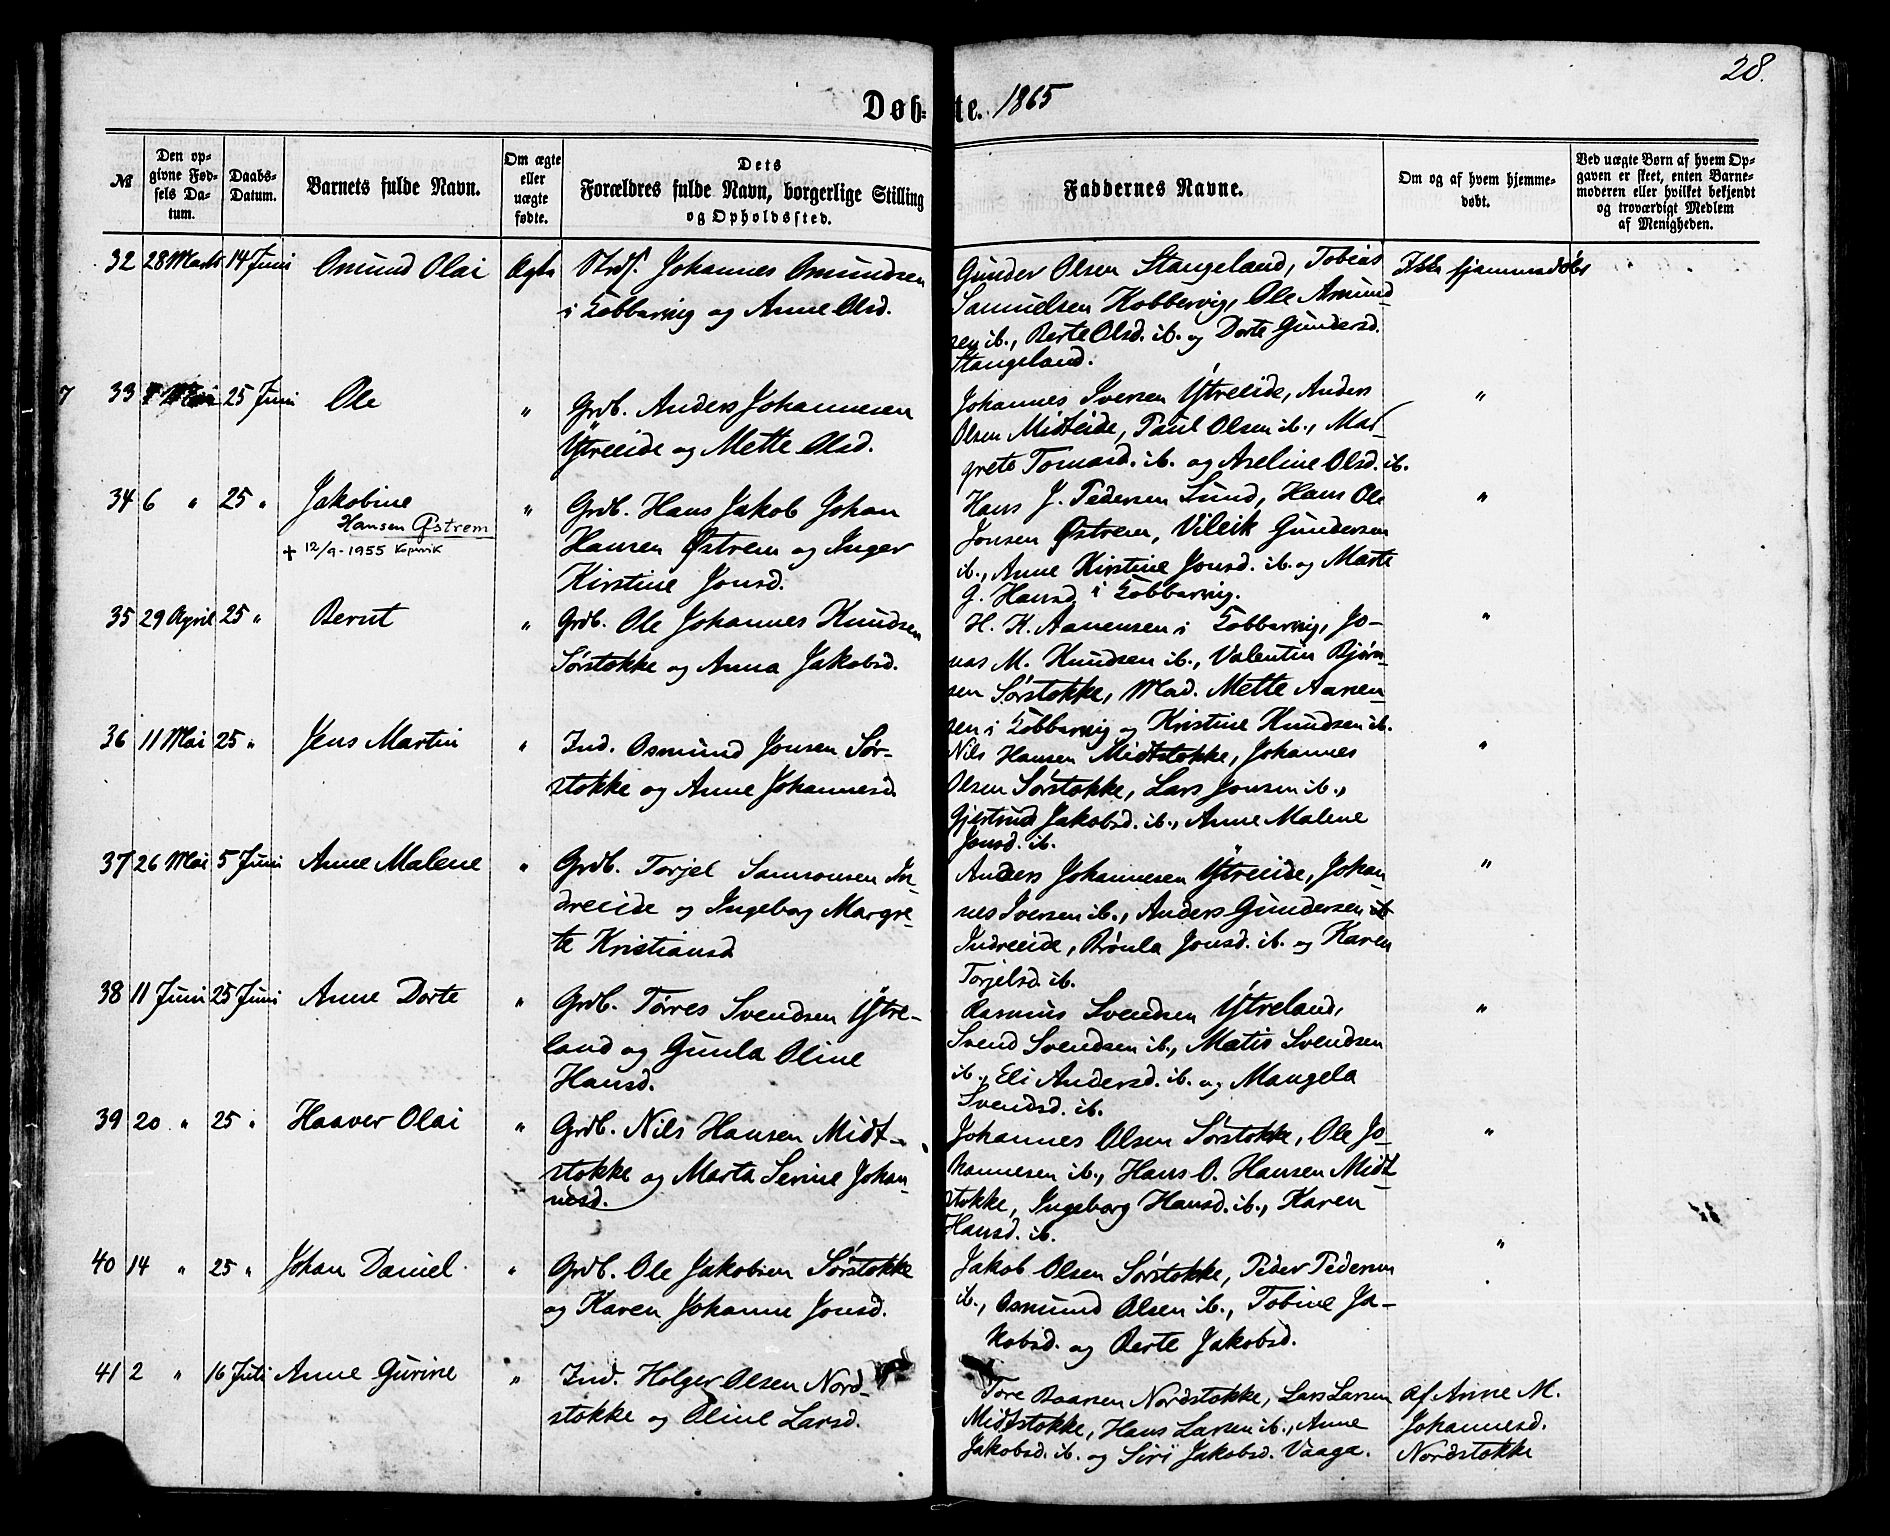 28.
Døb-te. 1865
№
Den opgivne Fødsels Datum.
Daabs-Datum.
Barnets fulde Navn.
Om ægte eller uægte fødte.
Dets Forældres fulde Navn, borgerlige Stilling og Opholdssted.
Faddernes Navne.
Om og af hvem hjemmedøbt.
Ved uægte Børn af hvem Opgaven er skeet, enten Barnemoderen eller hvilket bekjendt og troværdigt Medlem af Menigheden.
32 28 Marts 14 Juni Osmund Olai Ægte Strds. Johannes Osmundsen
i Kobbervig og Anne Olsd.
Gunder Olsen Stangeland, Tobias
Samuelsen Kobbervig, Ole Asmund-
sen ib., Berte Olsd. ib. og Dorte Gundersd.
Stangeland.
Ikke hjemmedøbt
7 33 Mai 25 Juni Ole " Grdb. Anders Johannesen
Ytreeide og Mette Olsd.
Johannes Iversen Ytreeide, Anders
Olsen Midteide, Paul Olsen ib., Mar-
grete Tomasd. ib. og Aseline Olsd. ib.
"
34 6 " 25 " Jakobine " Grdb. Hans Jakob Johan
Hansen Østrem
✝ 12/9-1955 Kopervik
Hansen Østrem og Inger
Kirstine Jonsd.
Hans J. Pedersen Lund, Hans Ole
Jonsen Østrem, Vileik Gundersen
ib., Anne Kirstine Jonsd. ib. og Marte
G. Hansd. i Kobbervig.
"
35 29 April 25 " Bernt " Grdb. Ole Johannes Knudsen
Sørstokke og Anna Jakobsd.
H. K. Aanensen i Kobbervig, Jo-
nas M. Knudsen ib., Valentin Bjørn-
sen Sørstokke, Mad. Mette Aanen-
sen i Kobbervig og Kristine Knudsen ib.
"
36 11 Mai 25 " Jens Martin " Ind. Osmund Jonsen Sør-
stokke og Anne Johannesd.
Nils Hansen Midtstokke, Johannes
Olsen Sørstokke, Lars Jonsen ib.,
Gjertrud Jakobsd. ib., Anne Malene
Jonsd. ib.
"
37 26 Mai 5 Juni Anne Malene " Grdb. Torjel Samsonsen In-
dreeide og Ingeborg Margre-
te Kristiansd.
Anders Johannesen Ytreeide, Johan-
nes Iversen ib., Anders Gundersen ib
Indreeide, Brønla Jonsd. ib. og Karen
Torjelsd. ib.
"
38 11 Juni 25 Juni Anne Dorte " Grdb. Tørres Svendsen Ytre-
land og Gunla Oline
Hansd.
Rasmus Svendsen Ytreland,
Svend Svendsen ib., Matis Svendsen
ib., Eli Andersd. ib. og Mangela
Svendsd. ib.
"
39 20 " 25 " Haaver Olai " Grdb. Nils Hansen Midt-
stokke og Marta Serine Johan-
nesd.
Johannes Olsen Sørstokke, Ole Jo-
hannesen ib., Hans O. Hansen Midt-
stokke, Ingeborg Hansd. ib., Karen
Hansd. ib.
"
40 14 " 25 " Johan Daniel " Grdb. Ole Jakobsen Sørstokke
og Karen Johanne Jonsd.
Jakob Olsen Sørstokke, Peder Pedersen
ib., Osmund Olsen ib., Tobine Ja-
kobsd. og Berte Jakobsd.
"
41 2 " 16 Juli Anne Gurine " Ind. Holger Olsen Nord-
stokke og Oline Larsd.
Tore Baarsen Nordstokke, Lars Larsen
Midtstokke, Hans Larsen ib., Anne
Jakobsd. ib. og Siri Jakobsd. Vaaga.
af Anne M.
Johannesd.
Nordstokke